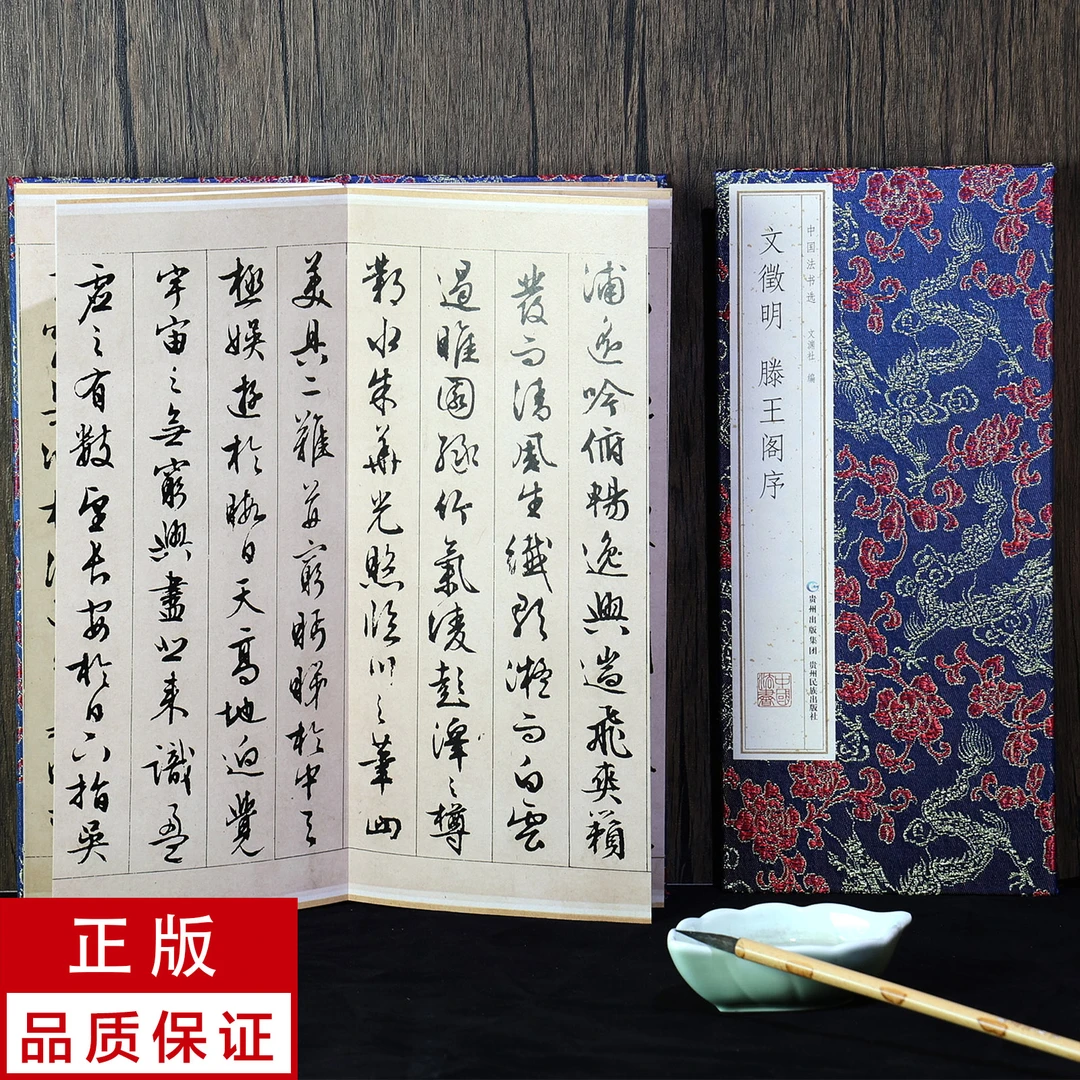 浦遙吟俯暢逸興遄飛爽籟
發而清風生纖歌凝而白雲
遏睢園綠竹氣凌彭澤之樽
鄴水朱華光照臨川之筆四
美具二難并窮眄睇於中天
極娛遊於暇日天高地迥覺
宇宙之無窮興盡悲來識盈
虛之有數望長安於日下指吳
中国法书选 文渊社 编
文徵明 滕王阁序
贵州出版集团 贵州民族出版社
中國法書
正版
品质保证